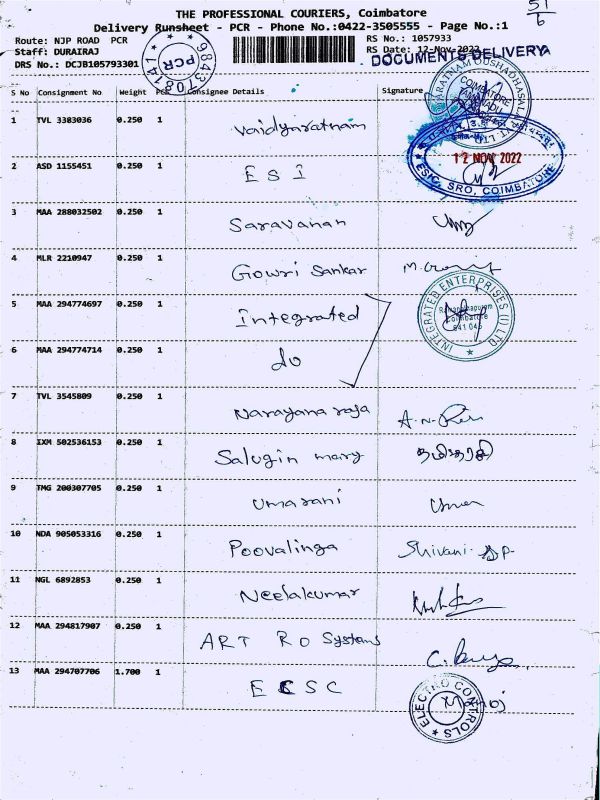 51
6
THE PROFESSIONAL COURIERS, Coimbatore
Delivery Runsheet - PCR - Phone No.:0422-3505555 - Page No.:1
Route: NJP ROAD PCR RS No.: 1057933
Staff: DURAIRAJ RS Date: 12-Nov-2022
DOCUMENTS DELIVERY
DRS No.: DCJB105793301
PCR
S No Consignment No Weight PCS Consignee Details Signature
1 TVL 3383036 0.250 1 Vaidyaratnam
COIMBATORE
2 ASD 1155451 0.250 1 E S I
12 NOV 2022
ESIC, SRO, COIMBATORE
3 MAA 288032502 0.250 1 Saravanan
4 MLR 2210947 0.250 1 Gowri Sankar
5 MAA 294774697 0.250 1 Integrated
INTEGRATED ENTERPRISES (I) LTD
Ramanathapuram
Coimbatore
641 045
6 MAA 294774714 0.250 1 do
7 TVL 3545809 0.250 1 Narayana raja
8 IXM 502536153 0.250 1 Salugin mary
9 TMG 200307705 0.250 1 Umarani
10 NDA 905053316 0.250 1 Poovalinga Shivani
11 NGL 6892853 0.250 1 Neelakumar
12 MAA 294817907 0.250 1 ART RO Systems
13 MAA 294707706 1.700 1 E C S C
ELECTRO CONTROLS
Manoj